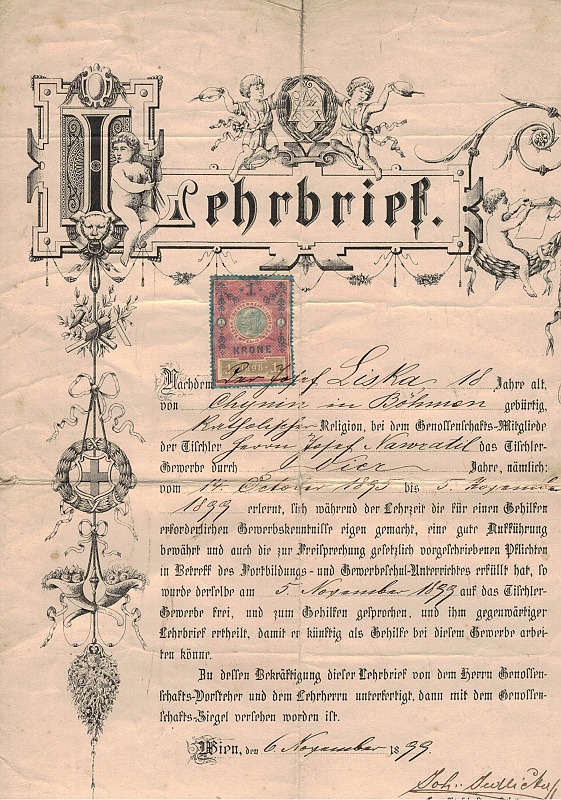 Lehrbrief.
1
KRONE
1898
Nachdem Der Josef Liska, 18 Jahre alt,
von Chynin in Böhmen gebürtig,
Katholischer Religion, bei dem Genossenschafts-Mitgliede
der Tischler Herrn Josef Nawratil das Tischler-
Gewerbe durch Vier Jahre, nämlich:
vom 14. October 1895 bis 5. November
1899 erlernt, sich während der Lehrzeit die für einen Gehilfen
erforderlichen Gewerbskenntnisse eigen gemacht, eine gute Aufführung
bewährt und auch die zur Freisprechung gesetzlich vorgeschriebenen Pflichten
in Betreff des Fortbildungs- und Gewerbeschul-Unterrichtes erfüllt hat, so
wurde derselbe am 5. November 1899 auf das Tischler-
Gewerbe frei, und zum Gehilfen gesprochen, und ihm gegenwärtiger
Lehrbrief ertheilt, damit er künftig als Gehilfe bei diesem Gewerbe arbei-
ten könne.
Zu dessen Bekräftigung dieser Lehrbrief von dem Herrn Genossen-
schafts-Vorsteher und dem Lehrherrn unterfertigt, dann mit dem Genossen-
schafts-Siegel versehen worden ist.
Wien, den 6. November 1899.
Joh. Sedlićka